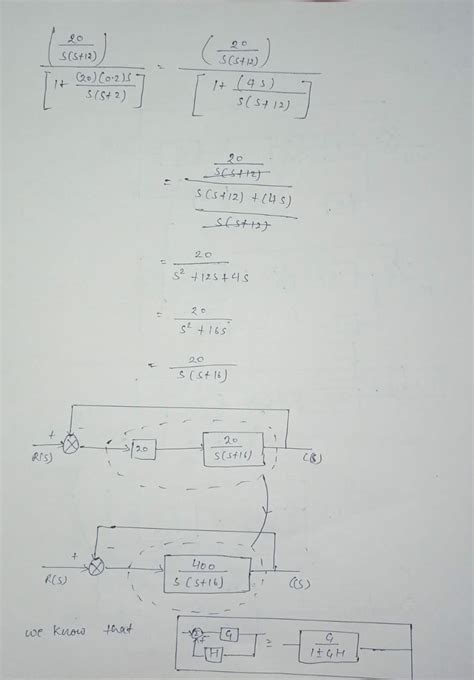 (20/s(s+12)) / [1+ (20)(0.2)s/s(s+2)] = (20/s(s+12)) / [1+ (4s)/s(s+12)]
= 20/s(s+12) / s(s+12)+(4s)/s(s+12)
= 20/s² +12s+4s
= 20/s² +16s
= 20/s(s+16)
+ -
R(s) 20 20/s(s+16) C(s)
+ -
R(s) 400/s(s+16) C(s)
we know that G H ≅ G/1±GH